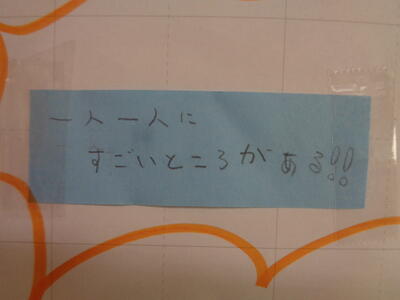 一人一人に
すごいところがある!!